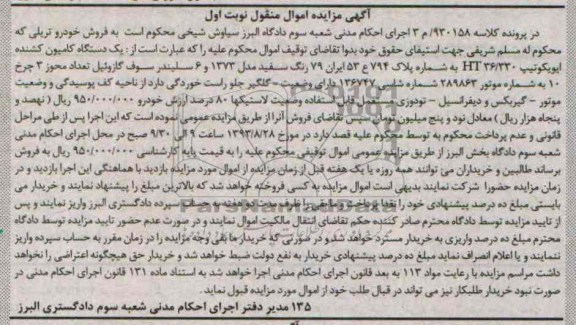 آگهی مزایده اموال منقول نوبت اول
در پرونده کلاسه ۹۳۰۱۵۸/م ۳ اجرای احکام مدنی شعبه سوم دادگاه البرز سیاوش شیخی محکوم است به فروش خودرو تریلی که
محکوم له مسلم شریفی جهت استیفای حقوق خود بدوا تقاضای توقیف اموال محکوم علیه را که عبارت است از : یک دستگاه کامیون کشنده
ایویکوتیپ HT ۳۶/۳۳۰ به شماره پلاک ۷۹۴ ع ۵۳ ایران ۷۹ رنگ سفید مدل ۱۳۷۳ و ۶ سیلندر سوخت گازوئیل تعداد محور ۳ چرخ
۱۰ به شماره موتور ۲۸۹۸۶۳ شماره شاسی ۱۳۶۷۴۷ دارای وضعیت - گلگیر جلو راست خوردگی دارد از ناحیه کف پوسیدگی و وضعیت
موتور - گیربکس و دیفرانسیل - تودوزی قابل استفاده وضعیت لاستیکها ۸۰ درصد ارزش خودرو ۹۵۰/۰۰۰/۰۰۰ ریال ( نهصد و
پنجاه هزار ریال ) معادل نود و پنج میلیون تومان سپس تقاضای فروش آنرا از طریق مزایده عمومی نموده است که این اجرا پس از طی مراحل
قانونی و عدم پرداخت محکوم به توسط محکوم علیه قصد دارد در مورخ ۱۳۹۳/۸/۲۸ ساعت ۹ الی ۹/۳۰ صبح در محل اجرای احکام مدنی
شعبه سوم دادگاه بخش البرز از طریق مزایده عمومی اموال توقیفی محکوم علیه را به قیمت پایه کارشناسی ۹۵۰/۰۰۰/۰۰۰ ریال به فروش
برساند طالبین و خریداران می توانند همه روزه یا یک هفته قبل از زمان مزایده از اموال مورد مزایده بازدید با هماهنگی این اجرا بازدید و در
زمان مزایده حضورا شرکت نمایند بدیهی است اموال مزایده به کسی فروخته خواهد شد که بالاترین مبلغ را پیشنهاد نمایند و خریدار می
بایستی مبلغ ده درصد پیشنهادی خود را نقدا پرداخت سپرده دادگستری البرز واریز نمایند و پس
از تایید مزایده توسط دادگاه محترم صادر کننده حکم تقاضای انتقال مالکیت اموال نمایند و در صورت عدم حضور تایید مزایده توسط دادگاه
محترم مبلغ ده درصد واریزی به خریدار مسترد خواهد شد و در صورتی که خریدار مابقی وجه مزایده را در زمان مقرر به حساب سپرده واریز
ننمایند و یا اعلام انصراف نماید مبلغ ده درصد پیشنهادی خریدار به نفع دولت ضبط خواهد شد و خریدار حق هیچگونه اعتراضی را نخواهد
داشت مراسم مزایده با رعایت مواد ۱۱۳ به بعد قانون اجرای احکام مدنی اجرا خواهد شد به استناد ماده ۱۳۱ قانون اجرای احکام مدنی در
صورت نبود خریدار طلبکار نیز می تواند در قبال طلب خود از اموال مورد مزایده قبول نماید .
۱۳۵ مدیر دفتر اجرای احکام مدنی شعبه سوم دادگستری البرز